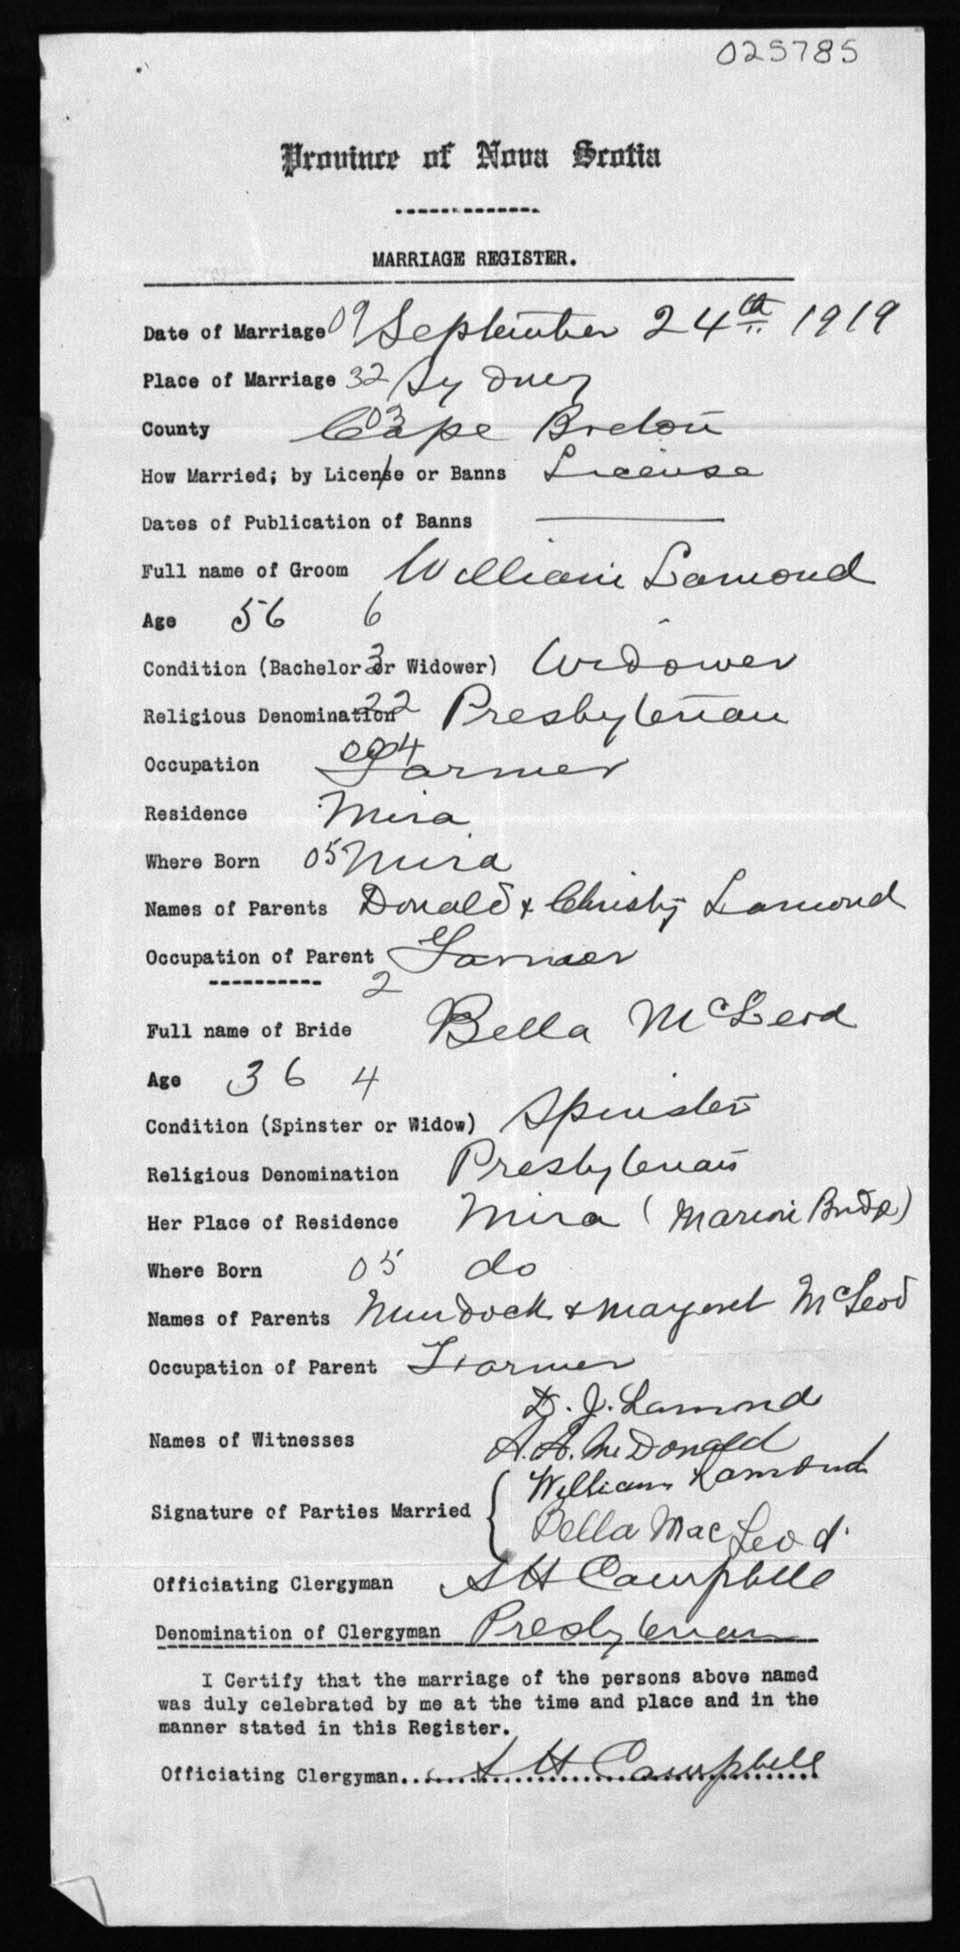 025785
Province of Nova Scotia
MARRIAGE REGISTER.
Date of Marriage 09 September 24th 1919
Place of Marriage 32 Sydney
County 03 Cape Breton
How Married; by License or Banns License
Dates of Publication of Banns
Full name of Groom William Lamond
Age 56 6
Condition (Bachelor or Widower) 3 Widower
Religious Denomination 22 Presbyterian
Occupation 004 Farmer
Residence Mira
Where Born 05 Mira
Names of Parents Donald & Christy Lamond
Occupation of Parent Farmer
2
Full name of Bride Bella McLeod
Age 36 4
Condition (Spinster or Widow) Spinster
Religious Denomination Presbyterian
Her Place of Residence Mira (Marion Bridge)
Where Born 05 do
Names of Parents Murdock & Margaret McLeod
Occupation of Parent Farmer
D. J. Lamond
Names of Witnesses A. A. McDonald
William Lamond
Signature of Parties Married Bella MacLeod.
Officiating Clergyman Campbell
Denomination of Clergyman Presbyterian
I Certify that the marriage of the persons above named
was duly celebrated by me at the time and place and in the
manner stated in this Register.
Officiating Clergyman Campbell